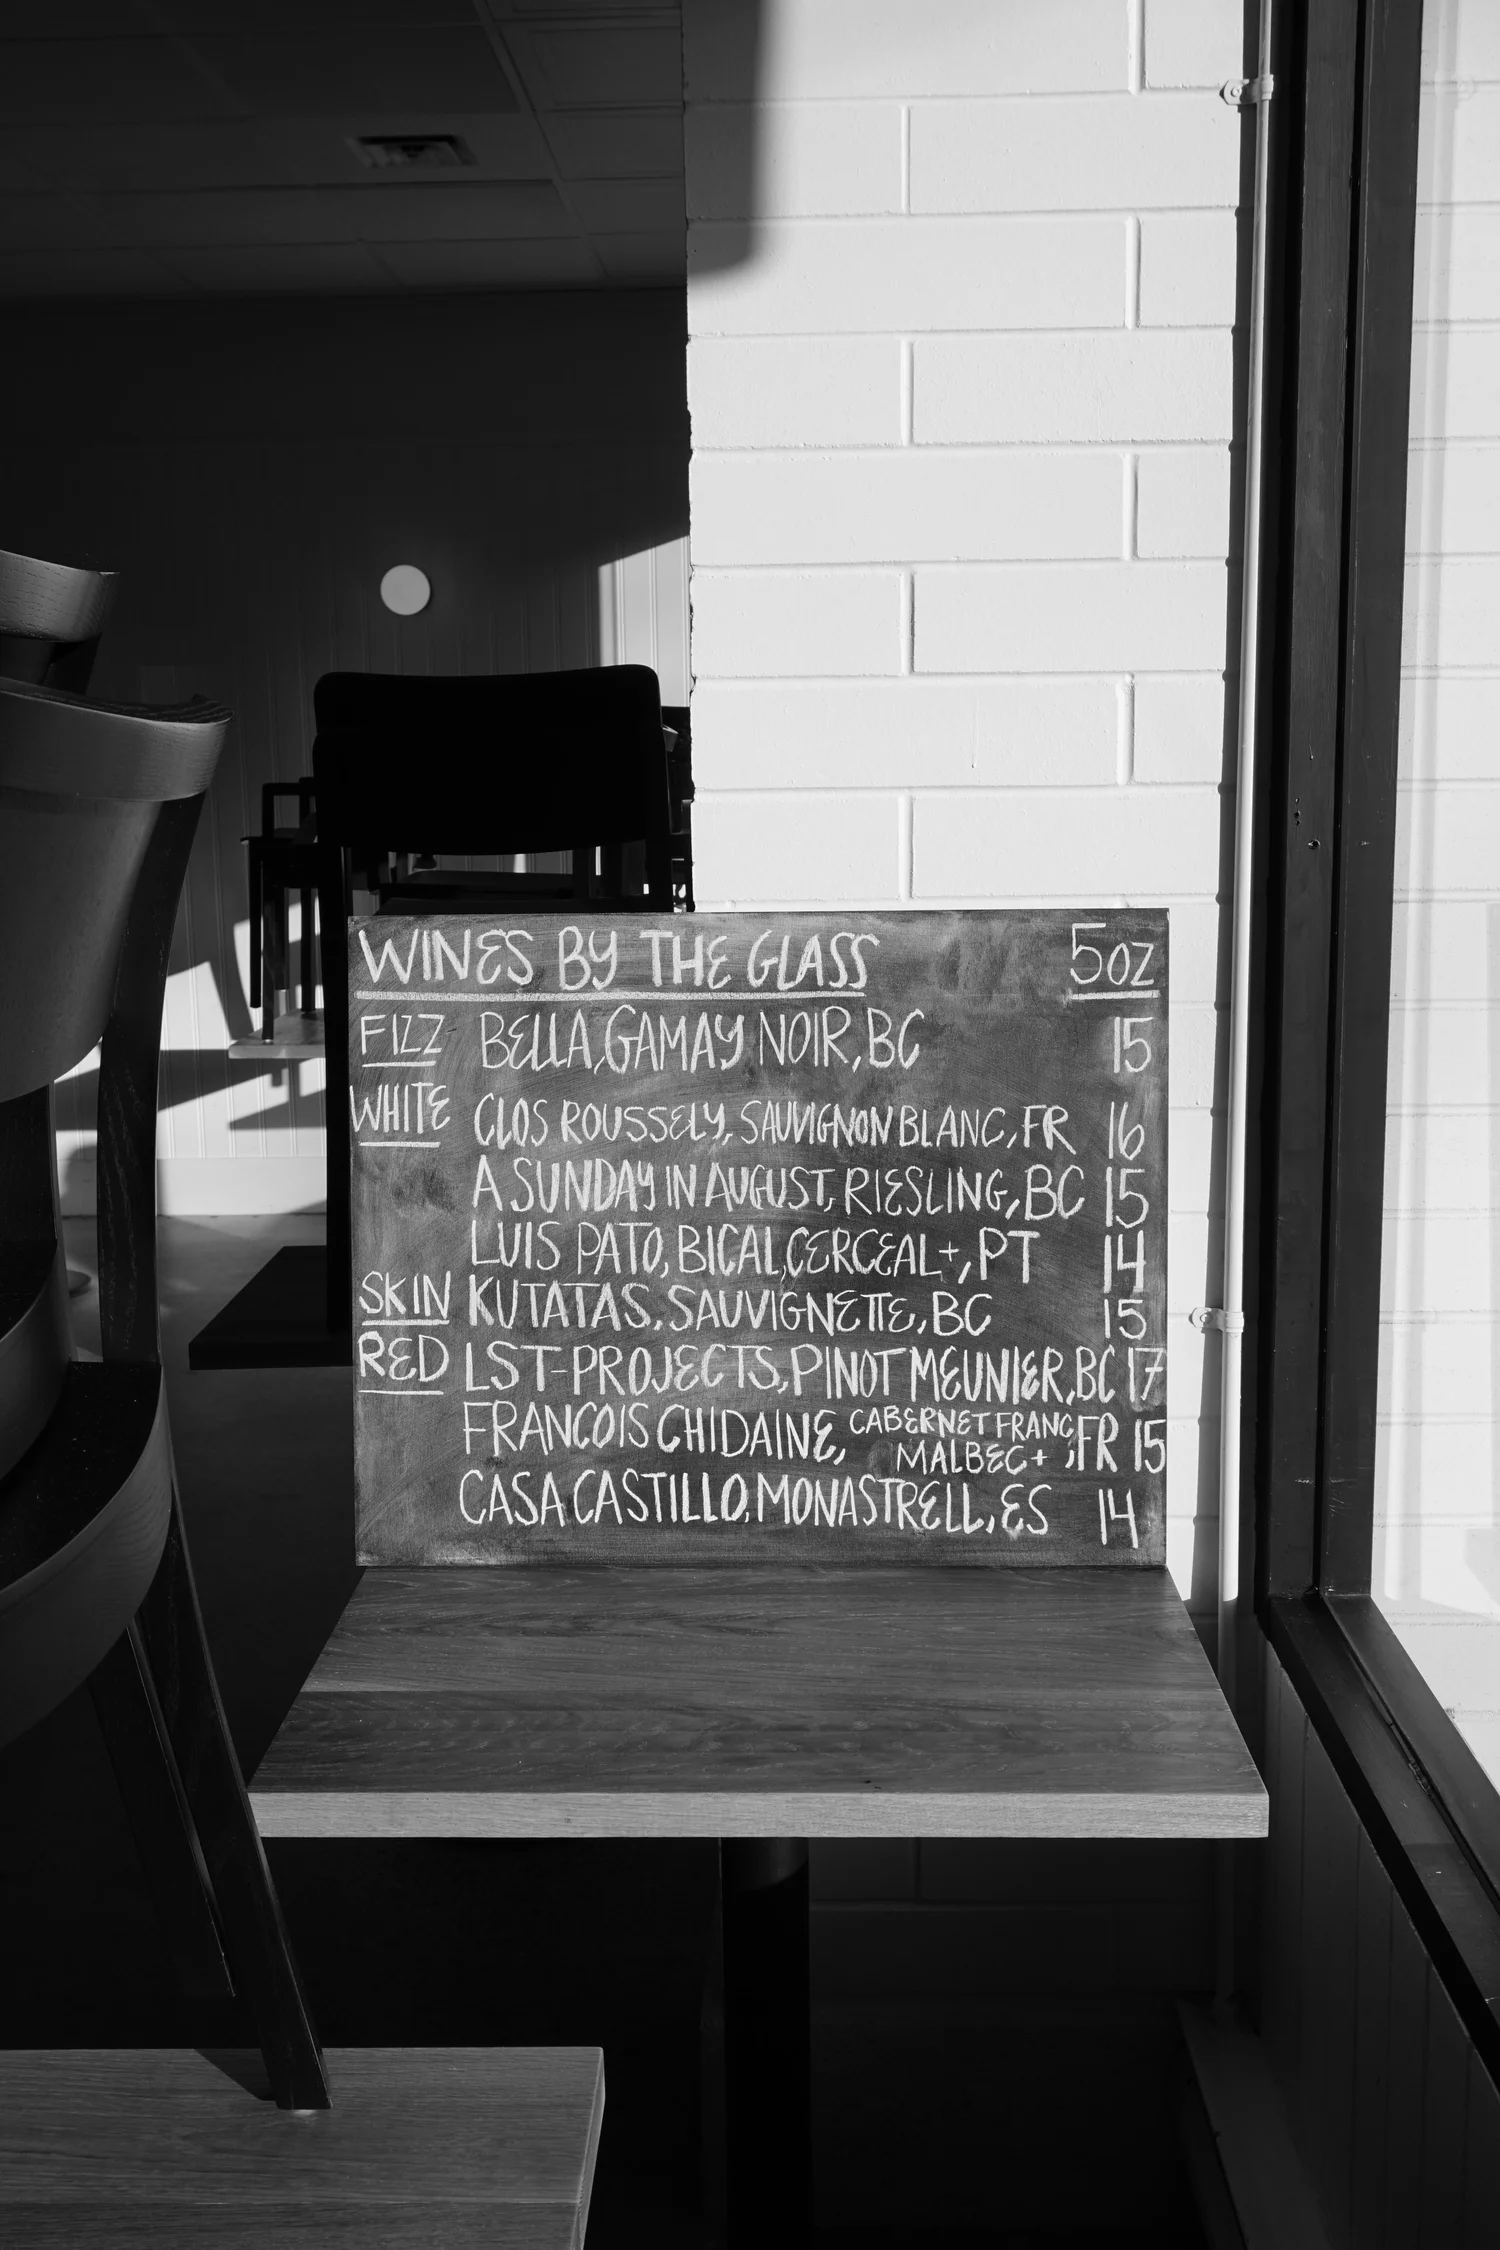 WINES BY THE GLASS 5OZ
FIZZ BELLA, GAMAY NOIR, BC 15
WHITE CLOS ROUSSELY, SAUVIGNON BLANC, FR 16
A SUNDAY IN AUGUST, RIESLING, BC 15
LUIS PATO, BICAL, CERCEAL+, PT 14
SKIN KUTATAS, SAUVIGNETTE, BC 15
RED LST-PROJECTS, PINOT MEUNIER, BC 17
FRANCOIS CHIDAINE, CABERNET FRANC, FR 15
MALBEC+
CASA CASTILLO, MONASTRELL, ES 14